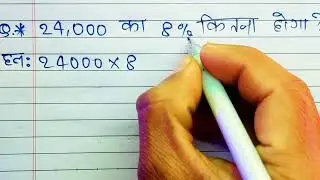 Q.* 24,000 का 8% कितना होगा?
हल: 24000 × 8